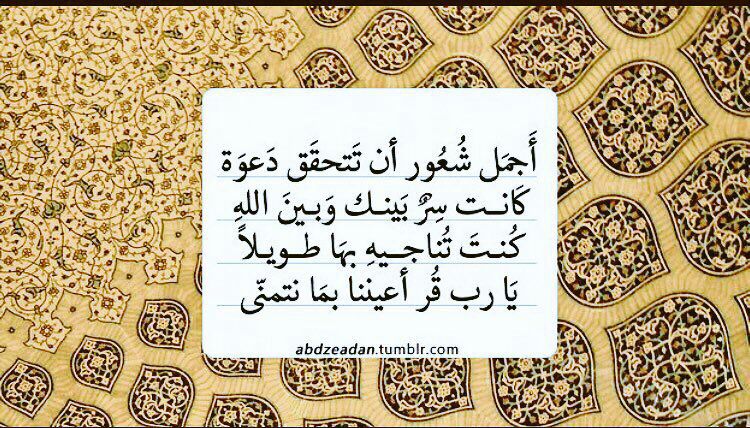 أَجمَل شُعُور أن تَتحقَق دَعوَة
كَانـت سِرٌ بَينـك وَبـينَ اللهِ
كُنـتَ تُناجـيهِ بهَا طـويـلاً
يَا رب قُر أعيننا بمَا نتمنّى
abdzeadan.tumblr.com